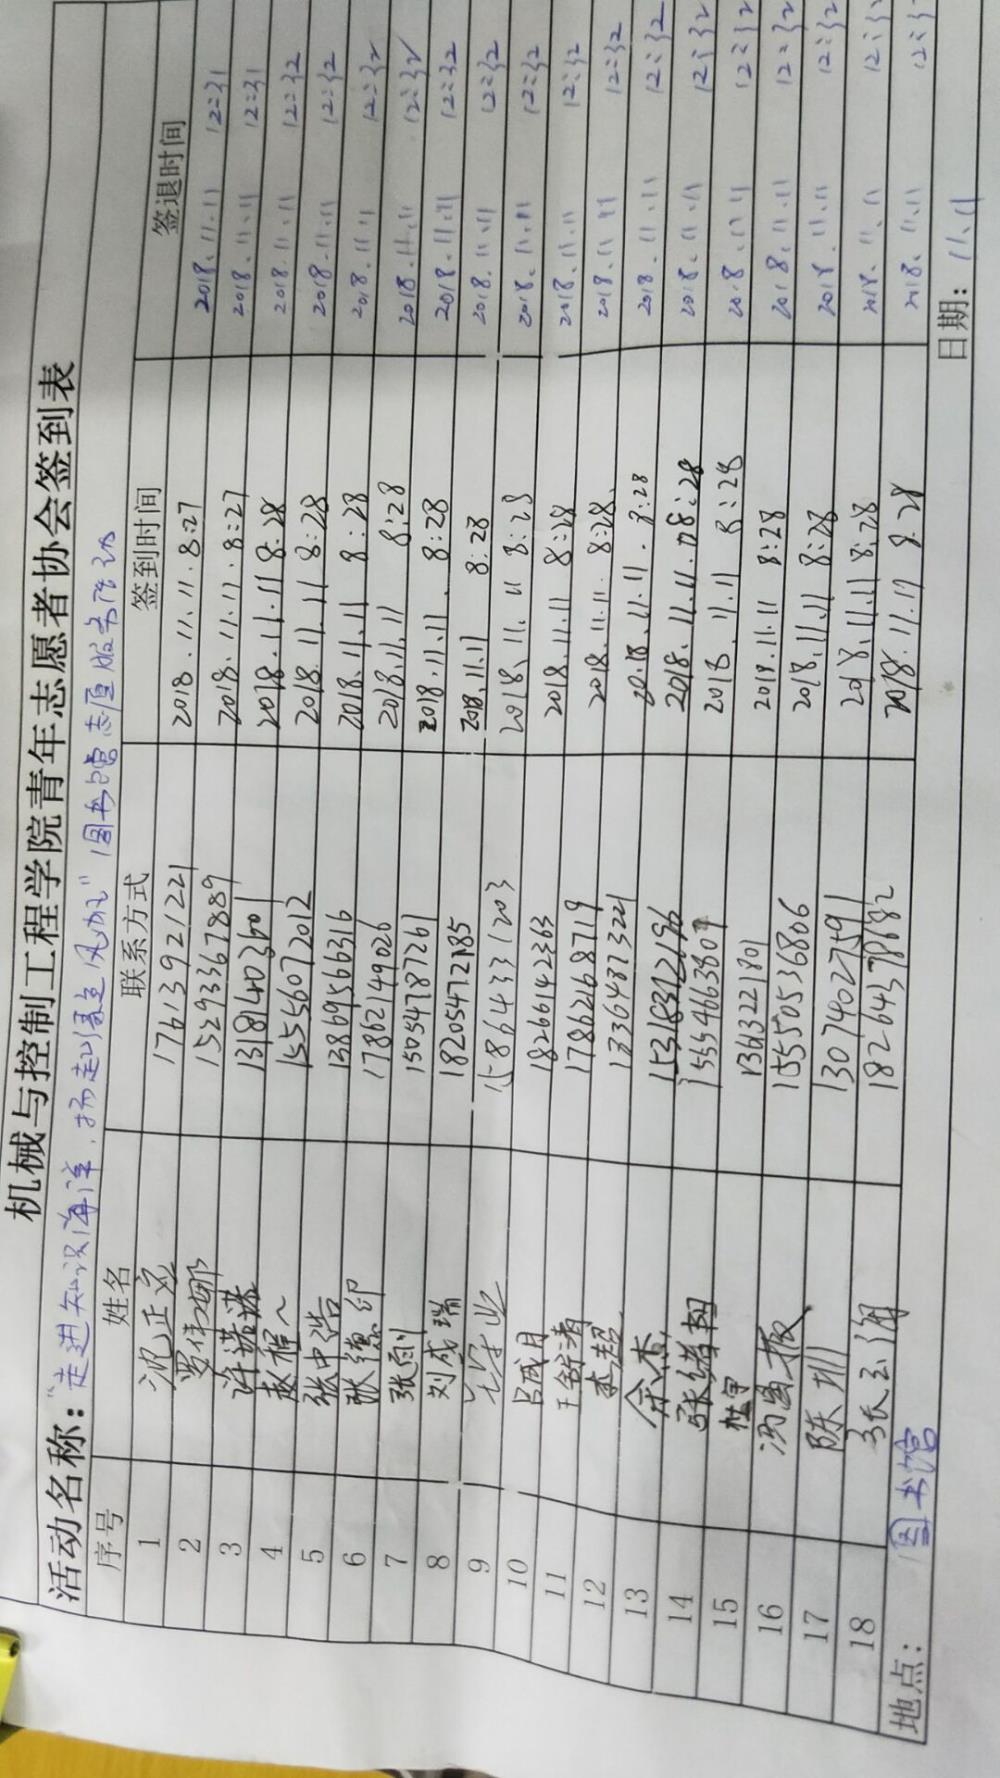 机械与控制工程学院青年志愿者协会签到表
活动名称："走进知识海洋，扬起清廉风帆"图书馆志愿服务活动
序号 姓名 联系方式 签到时间 签退时间
1 沈正宽 17613921221 2018.11.11.8:27 2018.11.11 12:31
2 15293367889 2018.11.11.8:27 2018.11.11 12:31
3 许诺诺 13181403601 2018.11.11 8:28 2018.11.11 12:32
4 15556072012 2018.11.11 8:28 2018.11.11 12:32
5 张中浩 13869566316 2018.11.11 8:28 2018.11.11 12:32
6 张德印 17862149026 2018.11.11 8:28 2018.11.11 12:32
7 15054787261 2018.11.11. 8:28 2018.11.11 12:32
8 刘成瑞 18205472185 2018.11.11 8:28 2018.11.11 12:32
9 15864331203 2018.11.11 8:28 2018.11.11 12:32
10 吕成月 18266142363 2018.11.11 8:28 2018.11.11 12:32
11 王舒涛 17862168719 2018.11.11 8:28 2018.11.11 12:32
12 李超 13364873221 2018.11.11.8:28 2018.11.11 12:32
13 余杰 15318312196 2018.11.11.08:28 2018.11.11 12:32
14 张绪翔 15554663807 2018.11.11 8:28 2018.11.11 12:32
15 杜宇 2018.11.11 8:28 2018.11.11 12:32
16 冯昌振 15550536806 2018.11.11 8:28 2018.11.11 12:32
17 陈圳 13074027591 2018.11.11 8:28 2018.11.11 12:32
18 18264378182 2018.11.11 8:28 2018.11.11
地点：图书馆 日期：11.11